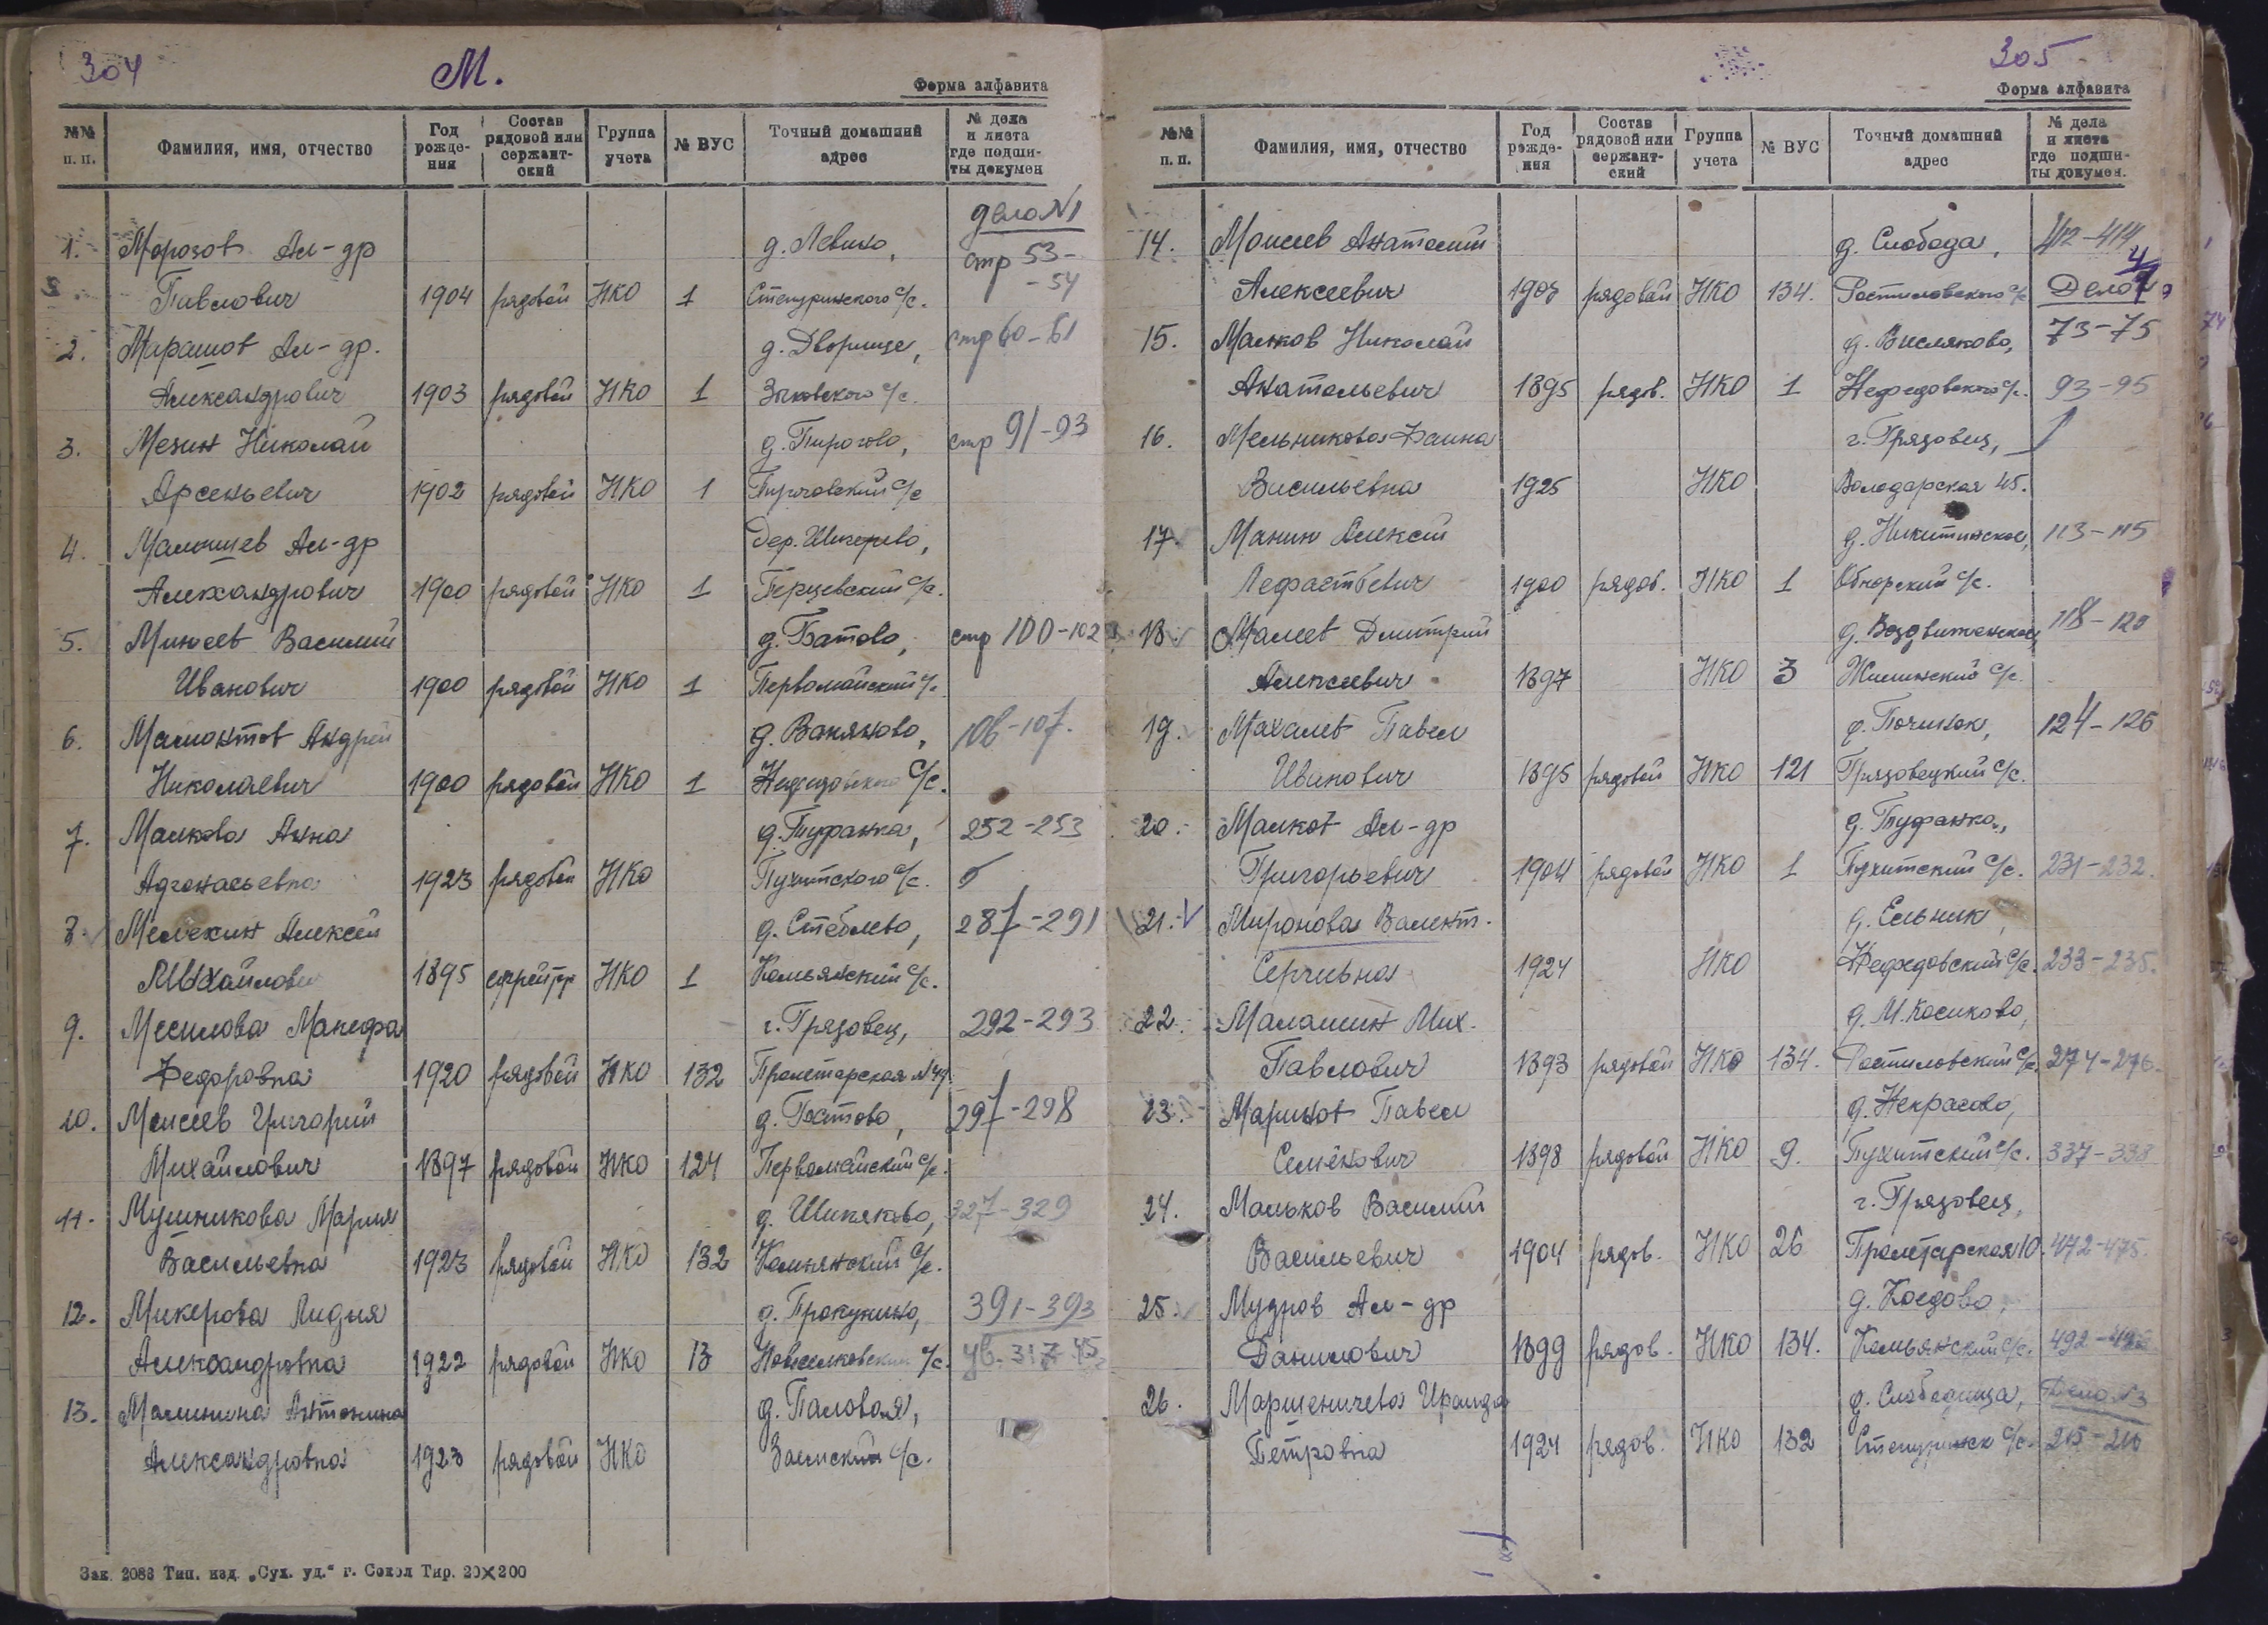 304
М.
Форма алфавита
№№ п. п. Фамилия, имя, отчество Год рожде-ния Состав рядовой или сержант-ский Группа учета № ВУС Точный домашний адрес № дела и листа где подши-ты докумен
дело №1
1. Морозов Ал-др д. Левино, стр 53-
Павлович 1904 рядовой НКО 1 Степуринского с/с. -54
2. Марашов Ал-др. д. Дворище, стр 60-61
Александрович 1903 рядовой НКО 1 с/с.
3. Мезин Николай д. Пирогово, стр 91-93
Арсеньевич 1902 рядовой НКО 1 Пироговский с/с
4. Малышев Ал-др Дер.
Александрович 1900 рядовой НКО 1 Перцевский с/с.
5. Минеев Василий д. Батово, стр 100-102
Иванович 1900 рядовой НКО 1 Первомайский с/с
6. Андрей д. Ваняково, 106-107.
Николаевич 1900 рядовой НКО 1 Нефедовского с/с.
7. Малкова Анна д. Туфанка, 252-253
Афонасьевна 1923 рядовой НКО Пухитского с/с.
8. Мелехин Алексей д. Стеблево, 287-291
Михайлович 1895 ефрейтр НКО 1 Комьянский с/с.
9. Месилова Манефа г. Грязовец, 292-293
Федоровна 1920 рядовой НКО 132 Пролетарская №49
10. Моисеев Григорий д. Ростово, 297-298
Михайлович 1897 рядовой НКО 124 Первомайский с/с.
11. Мушникова Мария д. Шиняково, 327-329
Васильевна 1923 рядовой НКО 132 Комьянский с/с.
12. Микерова Лидия д. Прокунино, 391-393
Александровна 1922 рядовой НКО 13 Новоселковский с/с.
13. Малинина Антонина д. Паловая,
Александровна 1923 рядовой НКО Заемский с/с.
Зак. 2086 Тип. изд. „Сух. уд.“ г. Сокол Тир. 20×200
305
Форма алфавита
№№ п. п. Фамилия, имя, отчество Год рожде-ния Состав рядовой или сержант-ский Группа учета № ВУС Точный домашний адрес № дела и листа где подши-ты докумен.
14. Моисеев Анатолий д. Слобода, 412-414
Алексеевич рядовой НКО 134. Ростиловского с/с Дело
15. Малков Николай д. Висляково, 73-75
Анатольевич 1895 рядов. НКО 1 Нефедовского с/с. 93-95
16. Мельникова Фаина г. Грязовец,
Васильевна 1925 НКО Володарская 45.
17. Манин Алексей д. Никитинское, 113-115
1900 рядов. НКО 1 Обнорский с/с.
18. Малеев Дмитрий д. Воздвиженское, 118-120
Алексеевич 1897 НКО 3 Жилинский с/с.
19. Махалев Павел д. Починок, 124-126
Иванович 1895 рядовой НКО 121 Грязовецкий с/с.
20. Малков Ал-др д. Туфанка,
Григорьевич 1904 рядовой НКО 1 Пухитский с/с. 231-232.
21. Миронова Валент. д. Ельник,
Сергеевна 1924 НКО Нефедовский с/с. 233-235.
22. Малашин Мих. д. М. Косиково,
Павлович 1893 рядовой НКО 134. Ростиловский с/с. 274-276.
23. Маринов Павел д. Некрасово,
Семёнович 1898 рядовой НКО 9. Пухитский с/с. 337-338
24. Мальков Василий г. Грязовец,
Васильевич 1904 рядов. НКО 26 Пролетарская 10. 472-475.
25. Мудров Ал-др д. Коедово,
Данилович 1899 рядов. НКО 134. Комьянский с/с.
26. Марщеничева Ираида д. Слободища, Дело №3
Петровна 1924 рядов. НКО 132 Степуринск с/с.